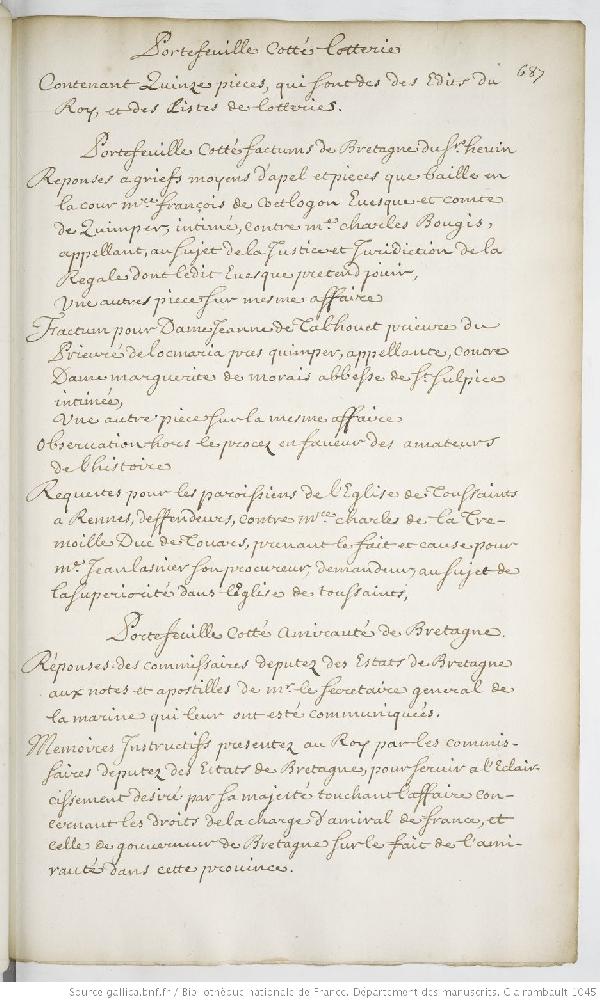 Portefeuille Cotté Lotterie
687
Contenant Quinze pieces, qui sont des des Edits du
Roy, et des Listes de lotteries.
Portefeuille Cotté factums de Bretagne du Sr. hevin
Reponses a griefs moyens d'apel et pieces que baille en
la cour mre. françois de Coetlogon Evesque et comte
de Quimper, intimé, contre me. charles Bougis,
appellant, au sujet de la Justice et Juridiction de la
Regale dont ledit Evesque pretend jouir,
Une autres piece sur mesme affaire
Factum pour Dame Jeanne de Talhouet prieure du
Prieuré de locmaria pres quimper, appellante, contre
Dame marguerite de morais abbesse de St. sulpice
intimée,
Une autre piece sur la mesme affaire
Observation hors le procez en faveur des amateurs
de l'histoire
Requestes pour les paroissiens de l'Eglise de Toussaints
a Rennes, deffendeurs, contre mre. charles de la Tre-
moille Duc de Touars, prenant le fait et cause pour
me. Jean lasnier son procureur, demandeur, au sujet de
la superiorité dans l'Eglise de toussaints,
Portefeuille Cotté Amirauté de Bretagne.
Réponses des commissaires deputez des Estats de Bretagne
aux notes et apostilles de mr. le secretaire general de
la marine qui leur ont esté communiquées.
Memoires Instructifs presentez au Roy par les commis-
saires deputez des Estats de Bretagne, pour servir a l'Eclair-
cissement desiré par sa majesté touchant l'affaire con-
cernant les droits de la charge d'amiral de france, et
celle de gouverneur de Bretagne sur le fait de l'ami-
rauté dans cette province.
Source gallica.bnf.fr / Bibliothèque nationale de France. Département des manuscrits. Clairambault 1045